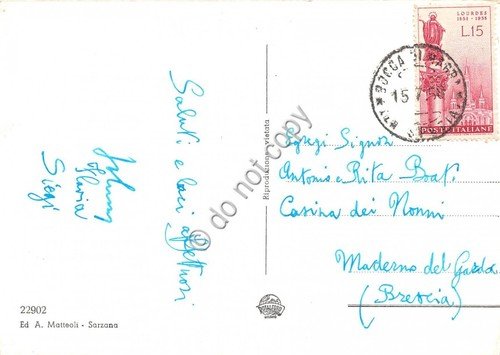 LOURDES
1858 - 1958
L.15
BOCCA DI MAGRA
15
POSTE ITALIANE
Saluti e baci affettuosi
Johnny
Flavia
Siegi
Riproduzione vietata
© do not copy
Egregi Signori
Antonio e Rita Boati
Casina dei Nonni
Maderno del Garda
(Brescia)
22902
Ed A. Matteoli - Sarzana